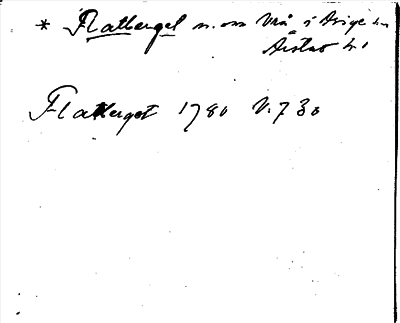 * Flatberget n. om Vrå i Asige sn
Årstad hd
Flatberget 1780 V. 730